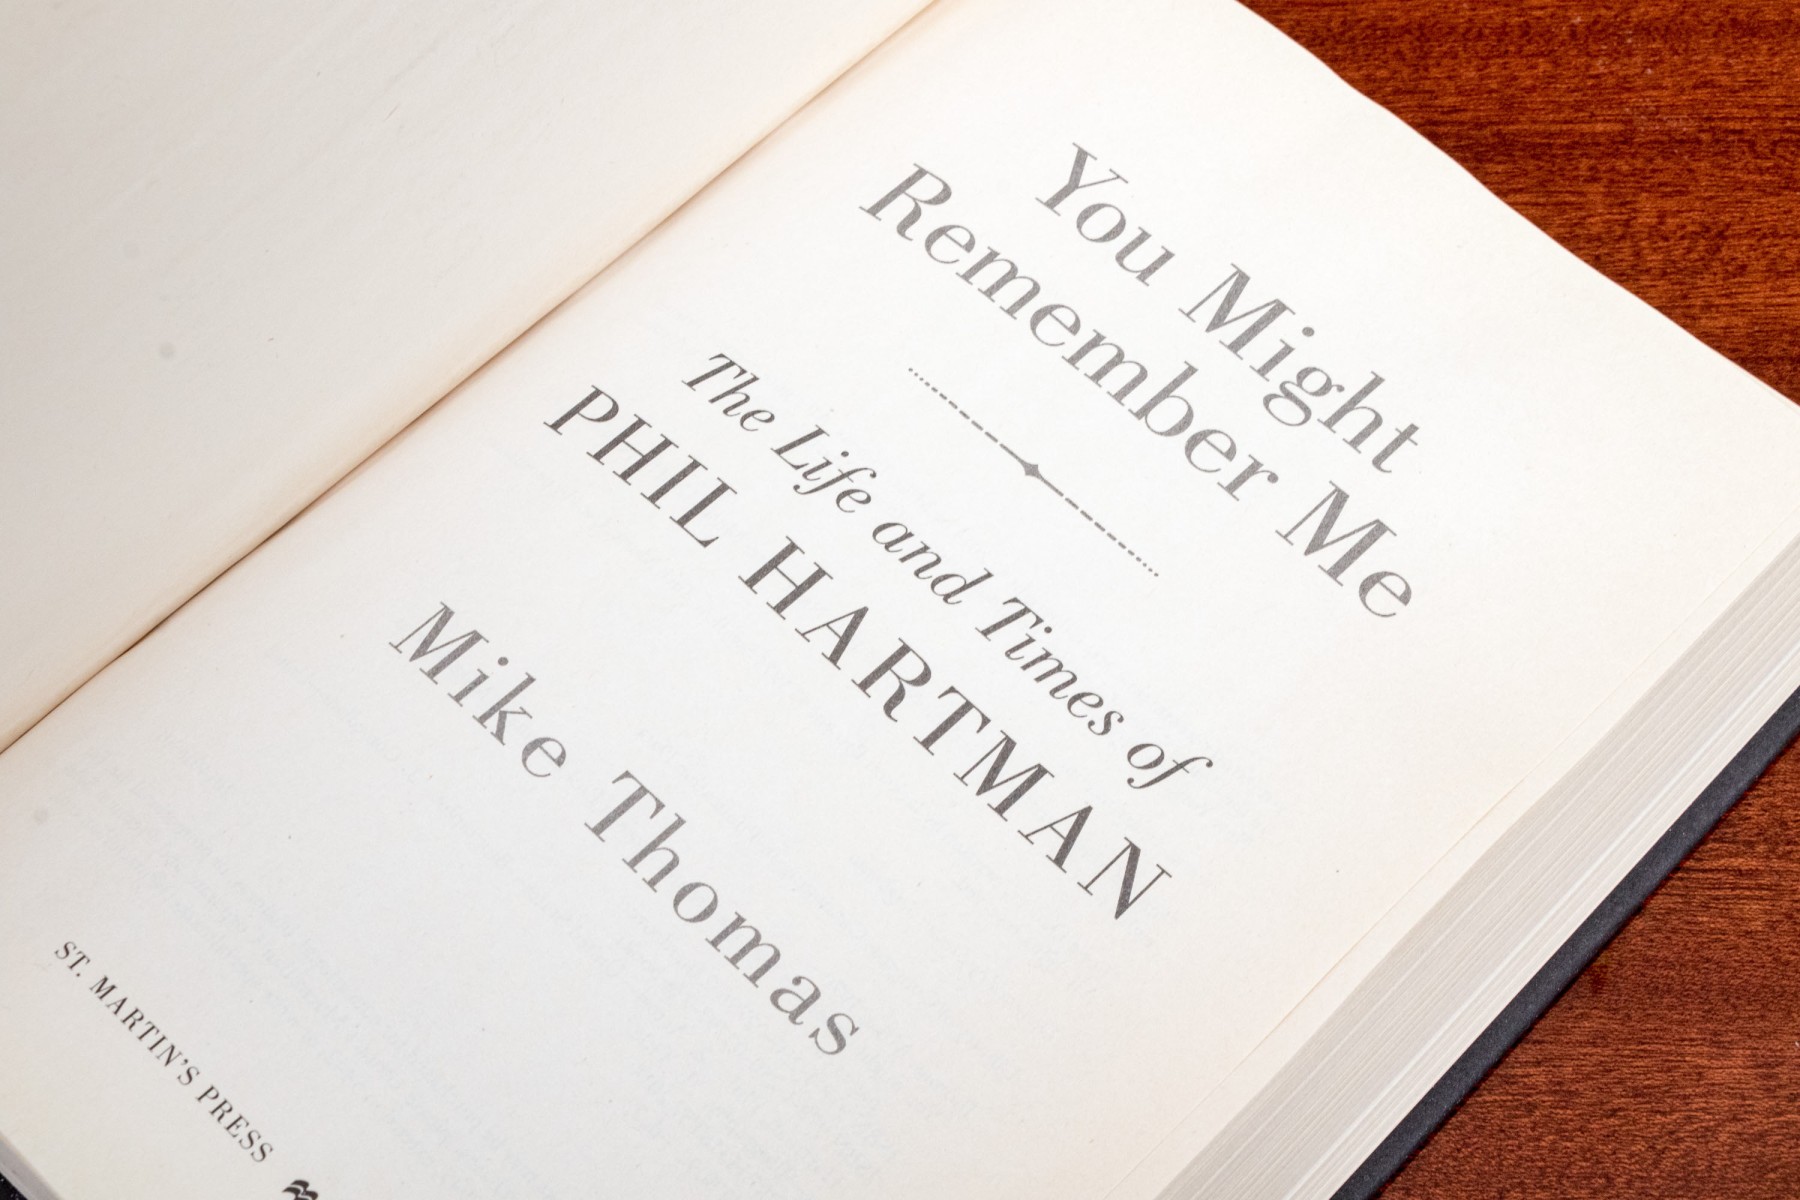 You Might
Remember Me
The Life and Times of
PHIL HARTMAN
Mike Thomas
ST. MARTIN'S PRESS